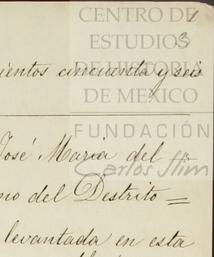 CENTRO DE
ESTUDIOS
3
DE HISTORIA
ientos cincuenta y seis
DE MEXICO
FUNDACIÓN
José Maria del
Carlos Slim
no del Destrito =
levantada en esta